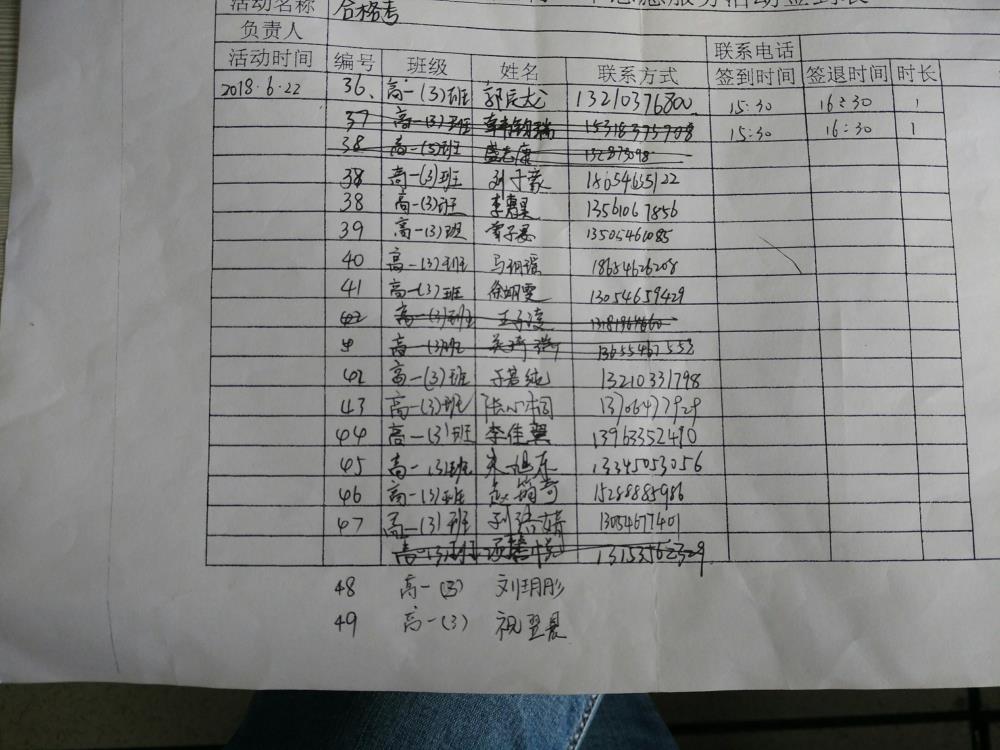 活动名称 合格考
负责人 联系电话
活动时间 编号 班级 姓名 联系方式 签到时间 签退时间 时长
2018.6.22 36、 高一(3)班 郭辰龙 13210376800 15:30 16:30 1
37 高一(3)班 15318375708 15:30 16:30 1
38 高一(5)班 盛志康
38 高一(3)班 刘子豪 18654635122
38 高一(3)班 李惠昊 13561067856
39 高一(3)班 13505461085
40 高一(3)班 马栩瑶 18654626208
41 高一(3)班 徐炳雯 13054659429
42 高一(3)班 王子凌
高一(3)班 13655467558
42 高一(3)班 于若纯 13210331798
43 高一(3)班 张心桐 13706477929
44 高一(3)班 李佳翼 13963352490
45 高一(3)班 13345053056
46 高一(3)班 赵筠奇 15288885986
47 高一(3)班 刘珞婧 13054677401
高一(3)班
48 高一(3) 刘玥彤
49 高一(3) 祝翌晨